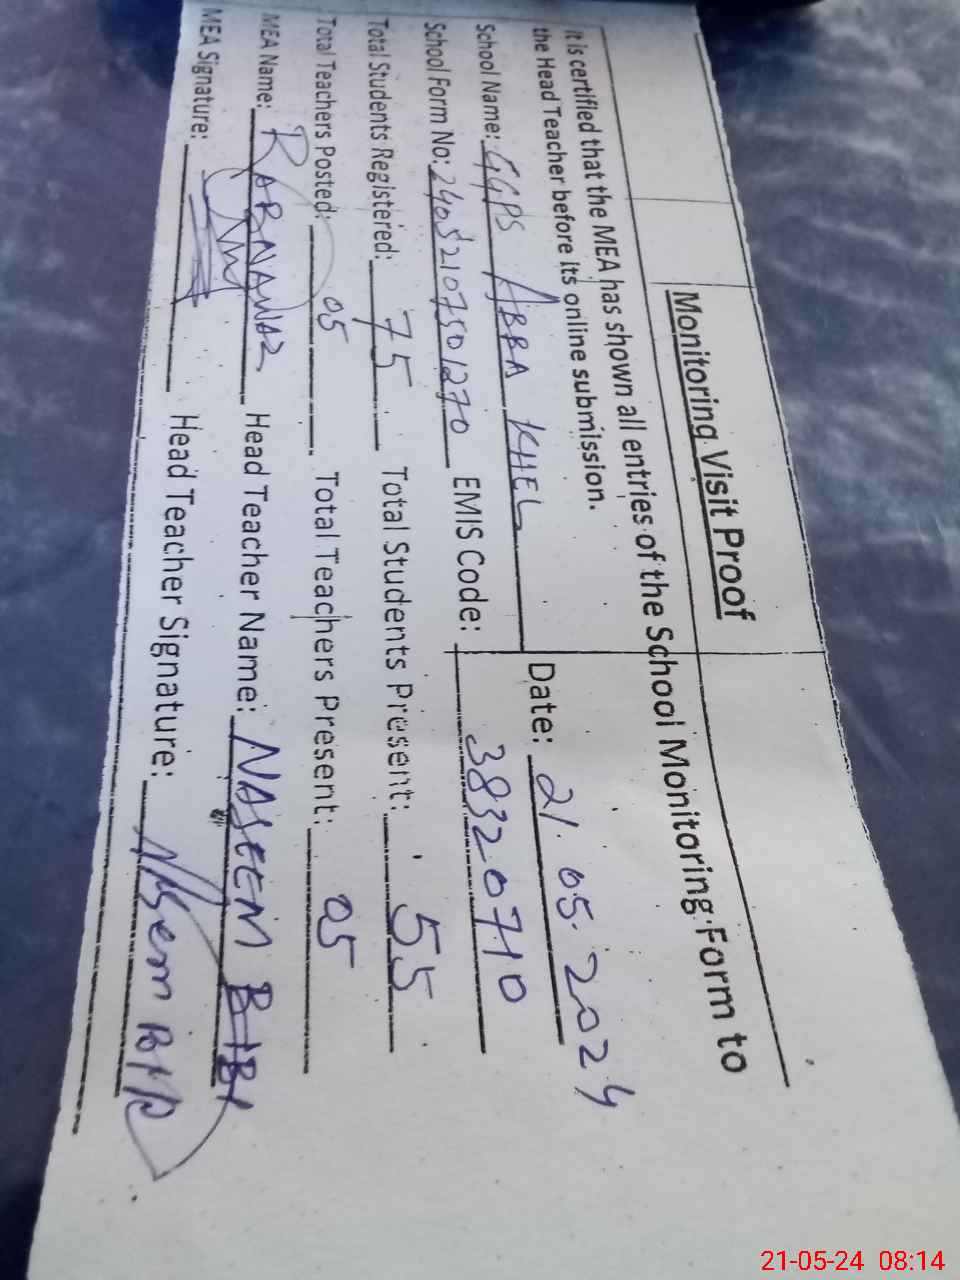 Monitoring Visit Proof
It is certified that the MEA has shown all entries of the School Monitoring Form to
the Head Teacher before its online submission.
School Name: GGPS ABBA KHEL Date: 21.05.2024
School Form No: 24052107501270 EMIS Code: 38320710
Total Students Registered: 75 Total Students Present: 55
Total Teachers Posted: 05 Total Teachers Present: 05
MEA Name: RABNAWAZ Head Teacher Name: NASEEM BIBI
MEA Signature: Head Teacher Signature: Nasem BiBi
21-05-24 08:14